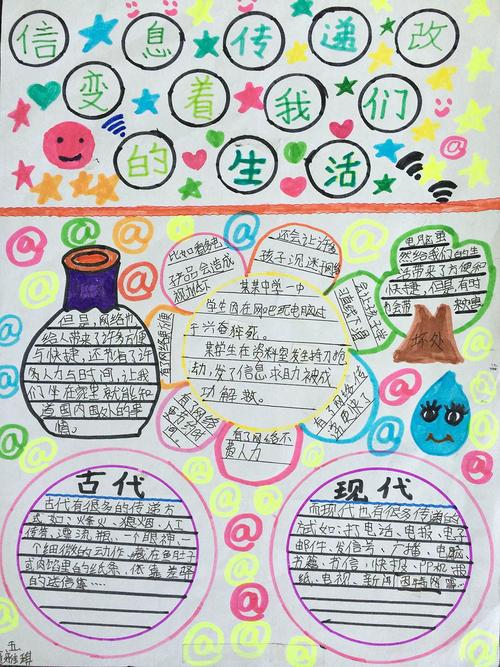 信息传递改
变着我们
的生活
比如看电
还会让许多
孩子沉迷网络
电脑虽
然给我们的生
活带来了方便和
快捷，但是有时
坏处
某某中学一中
学生因在网吧玩电脑过
于兴奋猝死。
某学生在资料室发生持刀抢
劫，发了信息求助力被成
功解救。
但是，网络也
给人带来了许多方便
与快捷，还节省了许
多人力与时间，让我
们坐在家里就能知
道国内国外的事
情。
有了网络
有了网络不
费人力
古代
古代有很多的传递方
式如：烽火、狼烟、人工
传递、漂流瓶、一个眼神、一
个细微的动作、藏在鱼肚子
或肉馅里的纸条、依靠
的送信集……
现代
而现代也有很多传递的
方式如：打电话、电报、电子
邮件、发信号、广播、电脑、
书籍、书信、快报、PP机、报
纸、电视、新闻、因特网等…
五